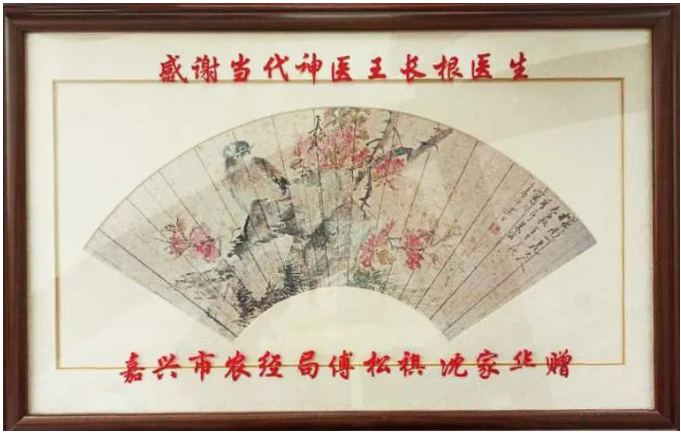 感谢当代神医王长根医生
嘉兴市农经局傅松祺 沈家华赠